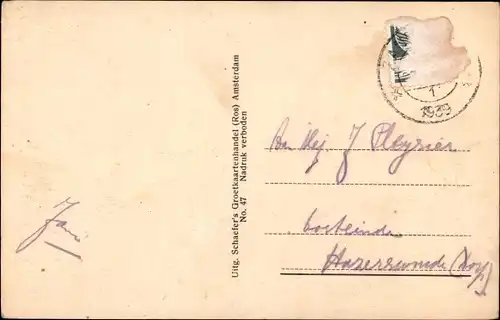 1
1939
Uitg. Schaefer's Groetkaartenhandel (Ros) Amsterdam
No. 47 Nadruk verboden
J Pleysier
oosteinde
Hazerswoude (dorp)
Jan